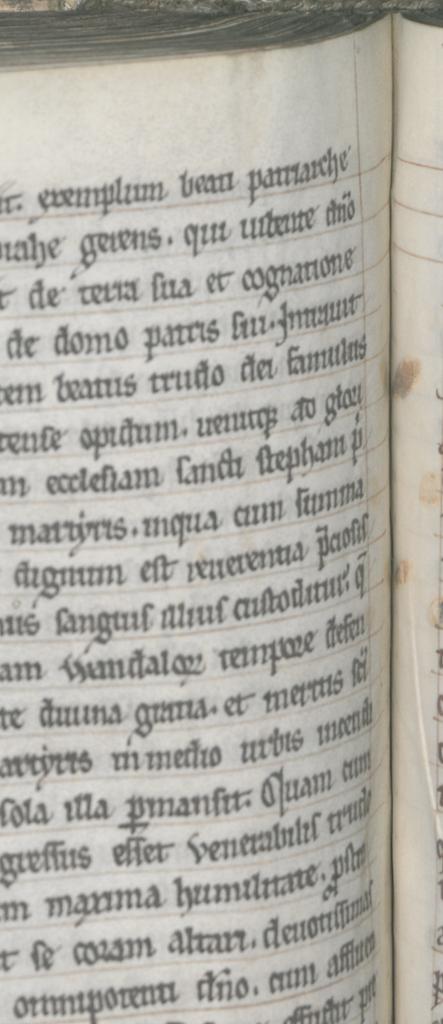 exemplum beati patriarche
gerens. qui uidente dño
de terra sua et cognatione
de domo patris sui. Intrauit
beatus trudo dei famulus
opidum. uenitqꝫ ad
ecclesiam sancti stephani p̃
martyris. inqua cum summa
dignum est reuerentia p̃ciosus
sanguis illius custoditur. q̃
wandaloꝝ tempore defen
te diuina gratia. et meritis sc̃i
in medio urbis incendii
sola illa ꝑmansit. Quam cum
gressus esset venerabilis trudo
maxima humilitate. ꝓstra
se coram altari. deuotissimas
omnipotenti dño. cum affluen
effudit pre